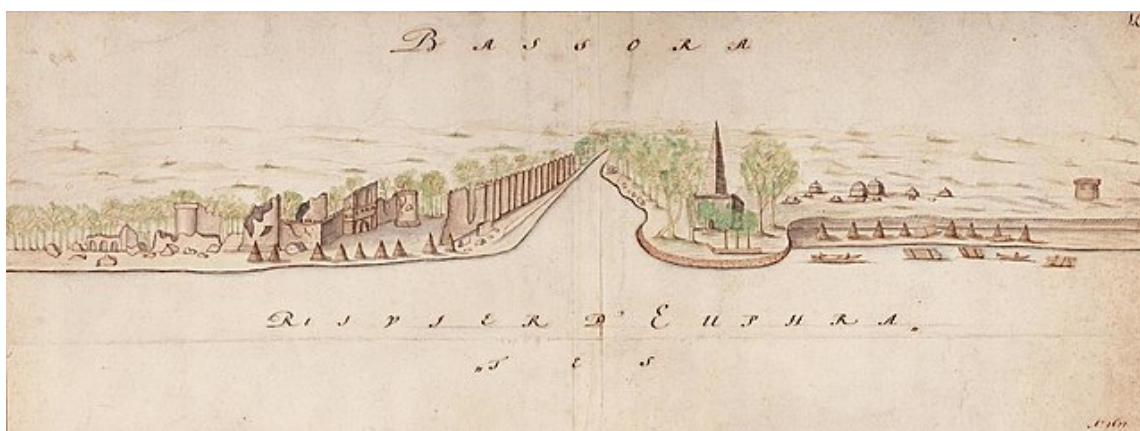 BASSORA
RIVIER D' EUPHRA„
„TES